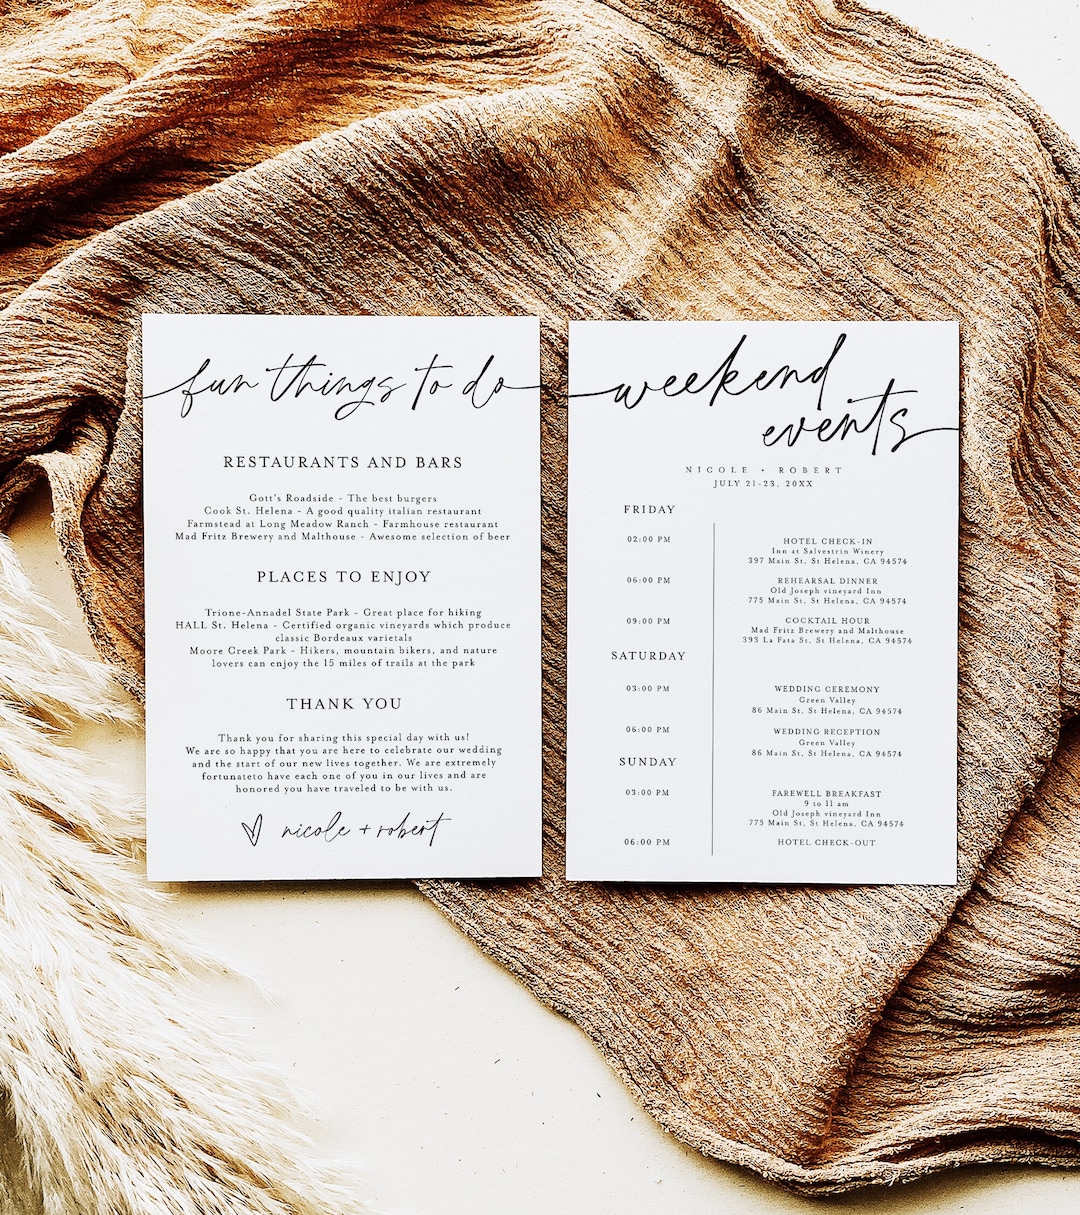 fun things to do
RESTAURANTS AND BARS
Gott's Roadside - The best burgers
Cook St. Helena - A good quality italian restaurant
Farmstead at Long Meadow Ranch - Farmhouse restaurant
Mad Fritz Brewery and Malthouse - Awesome selection of beer
PLACES TO ENJOY
Trione-Annadel State Park - Great place for hiking
HALL St. Helena - Certified organic vineyards which produce
classic Bordeaux varietals
Moore Creek Park - Hikers, mountain bikers, and nature
lovers can enjoy the 15 miles of trails at the park
THANK YOU
Thank you for sharing this special day with us!
We are so happy that you are here to celebrate our wedding
and the start of our new lives together. We are extremely
fortunateto have each one of you in our lives and are
honored you have traveled to be with us.
nicole + robert
weekend
events
NICOLE + ROBERT
JULY 21-23, 20XX
FRIDAY
02:00 PM
HOTEL CHECK-IN
Inn at Salvestrin Winery
397 Main St, St Helena, CA 94574
06:00 PM
REHEARSAL DINNER
Old Joseph vineyard Inn
775 Main St, St Helena, CA 94574
09:00 PM
COCKTAIL HOUR
Mad Fritz Brewery and Malthouse
393 La Fata St, St Helena, CA 94574
SATURDAY
03:00 PM
WEDDING CEREMONY
Green Valley
86 Main St, St Helena, CA 94574
06:00 PM
WEDDING RECEPTION
Green Valley
86 Main St, St Helena, CA 94574
SUNDAY
03:00 PM
FAREWELL BREAKFAST
9 to 11 am
Old Joseph vineyard Inn
775 Main St, St Helena, CA 94574
06:00 PM
HOTEL CHECK-OUT